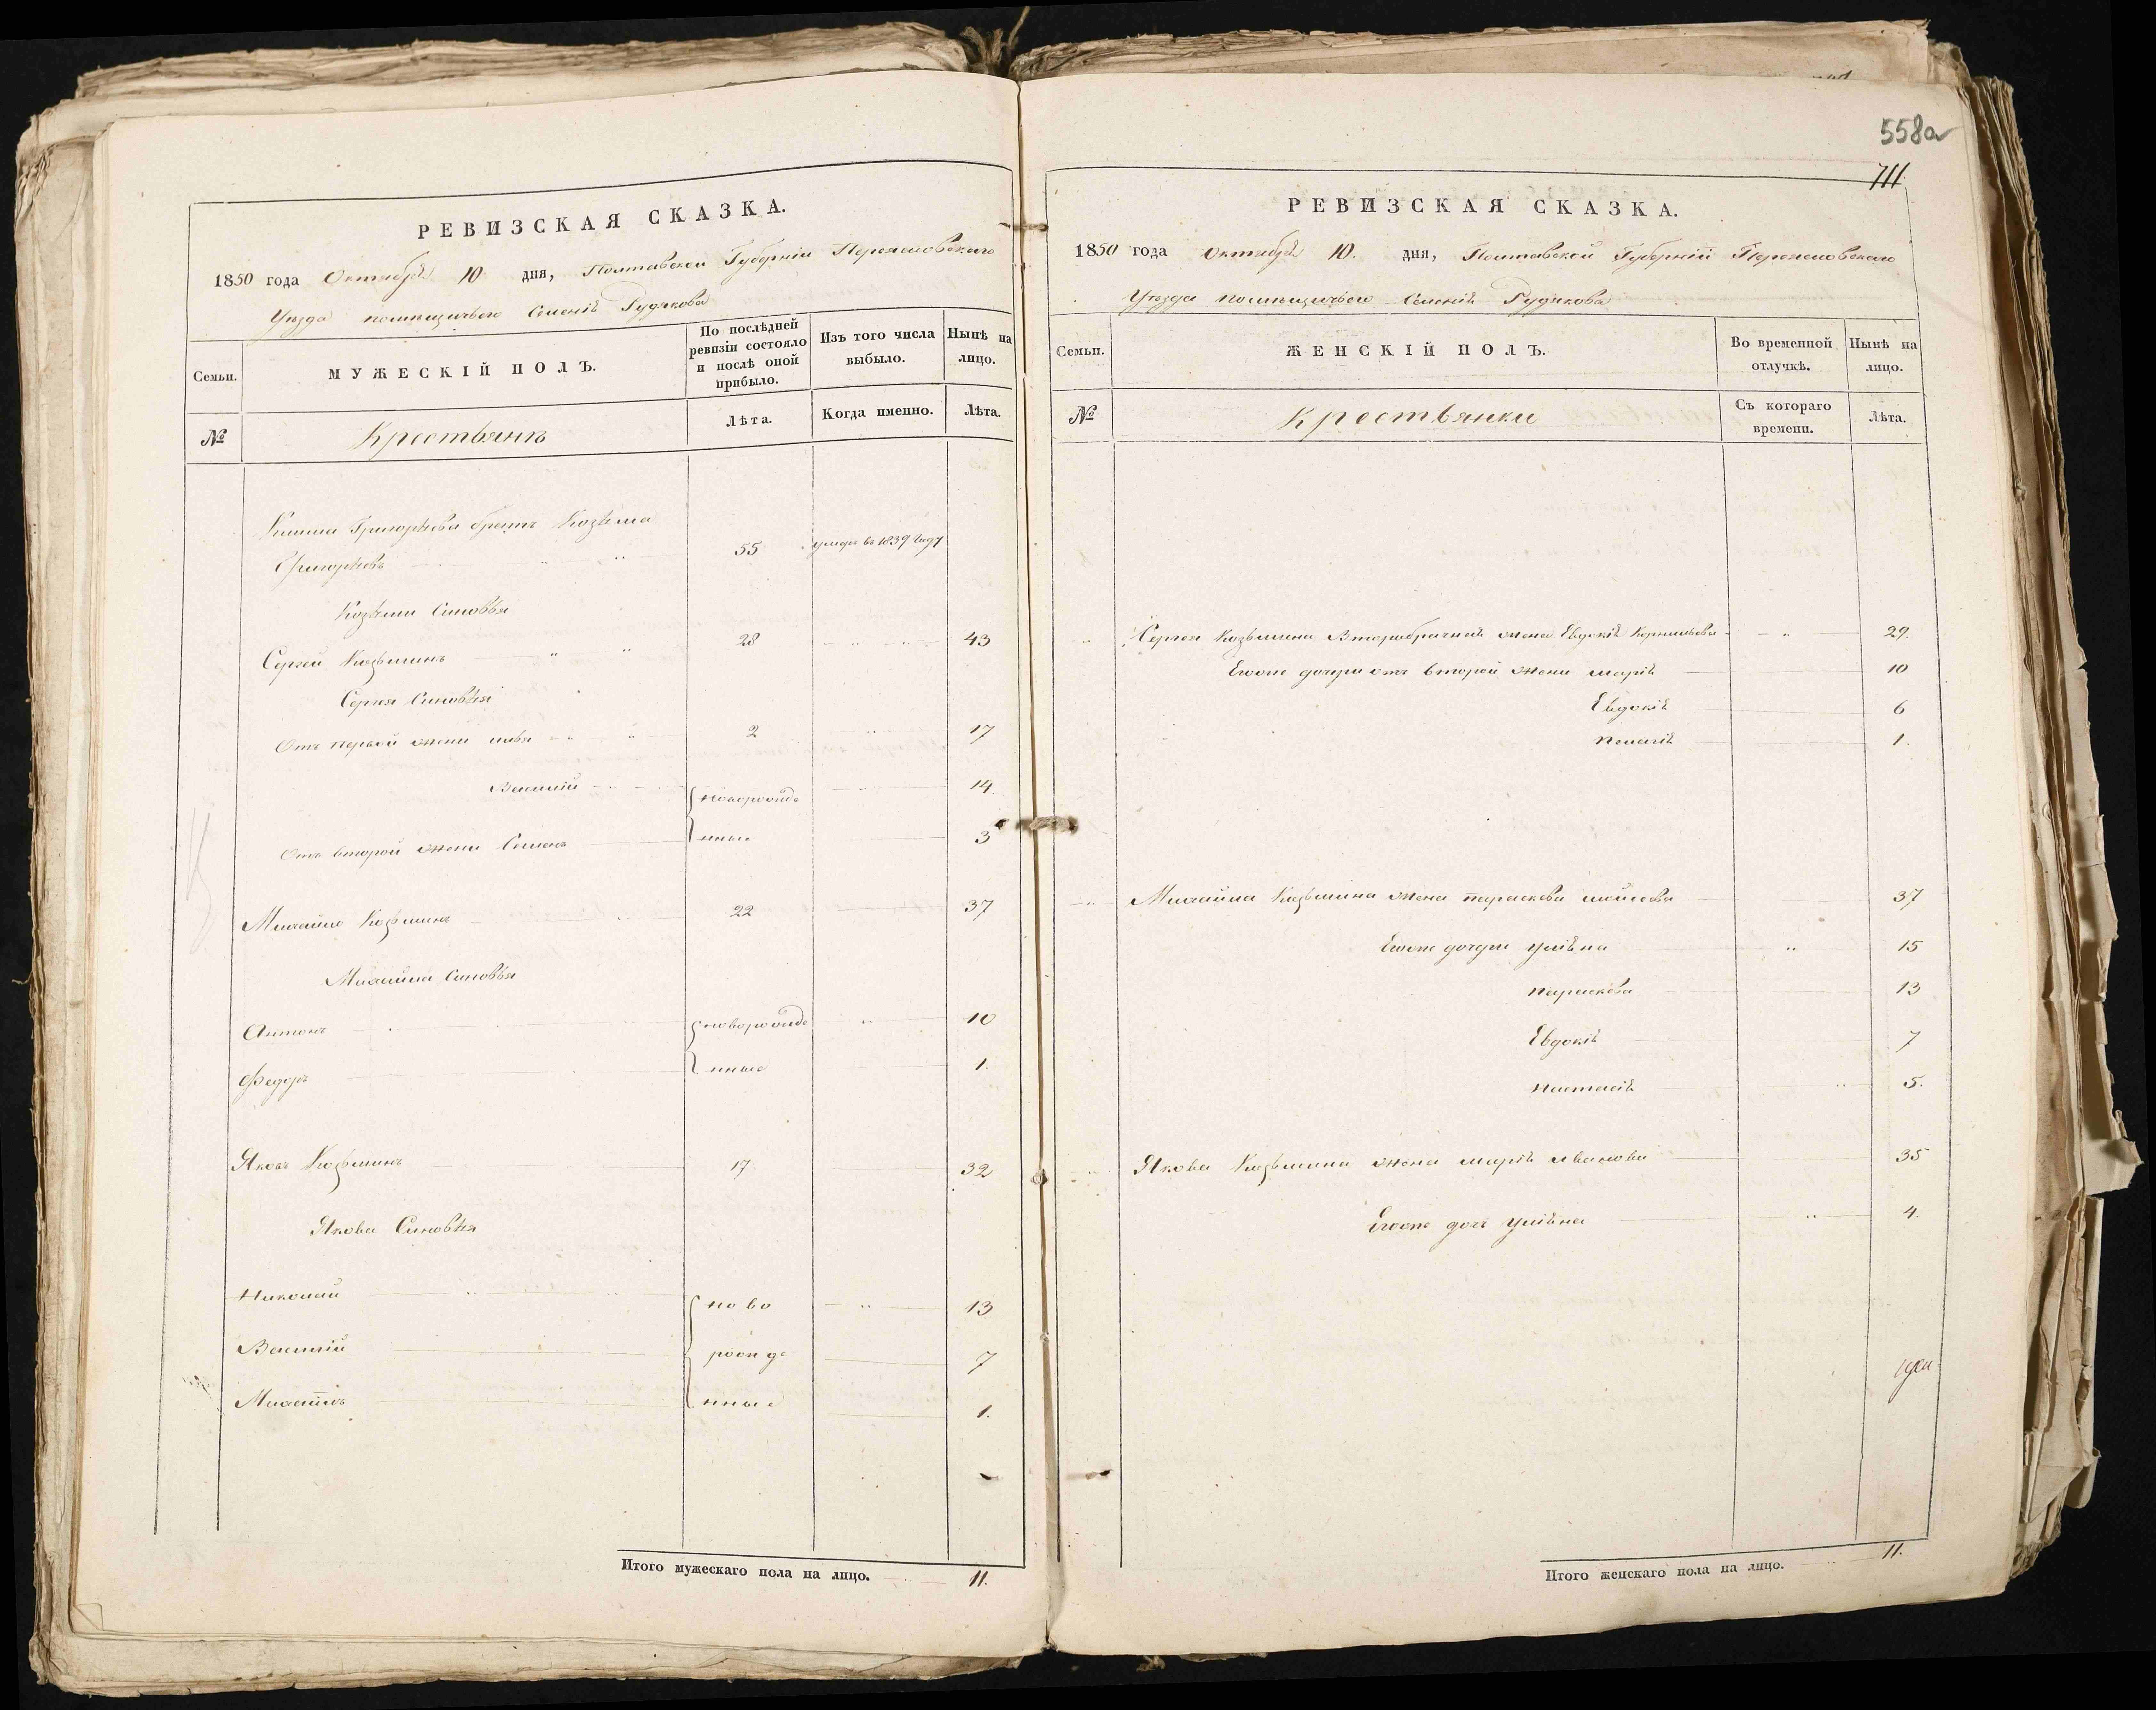 РЕВИЗСКАЯ СКАЗКА.
1850 года Октября 10 дня, Полтавской Губернiи Переяславского
Уезда помещичьего Селенiя Рудякова
Семьи.
МУЖЕСКІЙ ПОЛЪ.
По послѣдней ревизіи состояло и послѣ оной прибыло.
Изъ того числа выбыло.
Нынѣ на лицо.
№
Крестьянъ
Лѣта.
Когда именно.
Лѣта.
Григорьева братъ Козьма
Григорьевъ 55 умеръ въ 1839 году
Козьми Синовья
Сергей Козьминъ 28 43
Сергея Синовья
Отъ первой жени 2 17
Василiй новорожде 14
Отъ второй жени Семенъ нные 3
Михайло Козьминъ 22 37
Михайла Синовья
Антонъ новорожде 10
Федоръ нные 1.
Яковъ Козьминъ 17. 32
Якова Синовья
Николай ново 13
Василiй рожде 7
Михаилъ нные 1.
Итого мужескаго пола на лицо. 11.
558а
711
РЕВИЗСКАЯ СКАЗКА.
1850 года Октября 10. дня, Полтавской Губернiи Переяславского
Уезда помещичьего Селенiя Рудякова
Семьи.
ЖЕНСКІЙ ПОЛЪ.
Во временной отлучкѣ.
Нынѣ на лицо.
№
Крестьянки
Съ котораго времени.
Лѣта.
Сергея Козьмина Второбрачная жена Евдокiя Корнильева 29.
Егоже дочери отъ второй жени марiя 10
Евдокiя 6
пелагiя 1.
Михайла Козьмина жена параскева мойсеева 37
Егоже дочери улiяна 15
параскева 13
Евдокiя 7
настасiя 5.
Якова Козьмина жена марiя иванова 35
Егоже дочь улiяна 4.
Итого женскаго пола на лицо. 11.